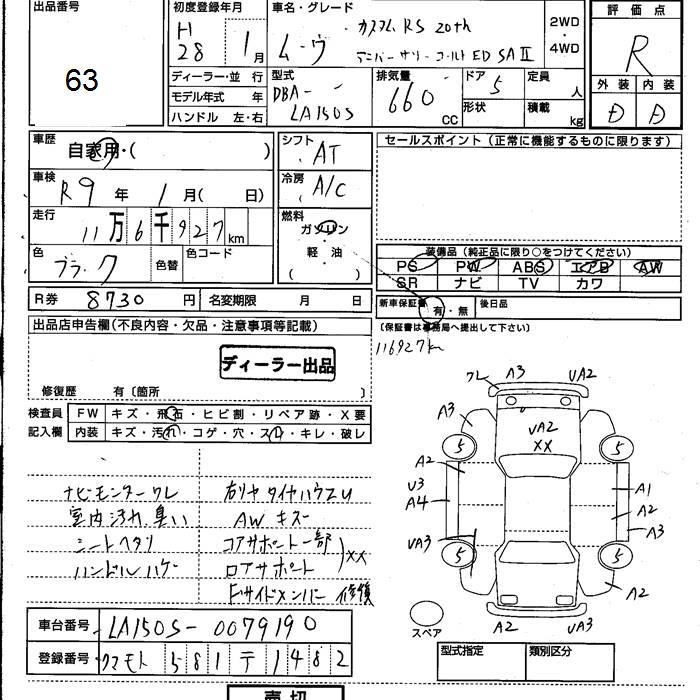 出品番号
63
初度登録年月
H28 1月
車名・グレード
ムーヴ カスタム RS 20th
アニバーサリーゴールドED SAⅡ
2WD
・
4WD
評価点
R
外装 内装
D D
ディーラー・並行
モデル年式 年
ハンドル 左・右
型式
DBA-
LA150S
排気量
660 CC
ドア 5
形状
定員 人
積載 kg
車歴
自家用・( )
シフト AT
車検
R9年 1月( 日)
冷房 A/C
走行
11万6千927km
燃料
ガソリン
・
軽油
( )
色
ブラック
色替
色コード
R券 8730円
名変期限 月 日
セールスポイント(正常に機能するものに限ります)
装備品(純正品に限り○をつけてください)
PS PW ABS エアB AW
SR ナビ TV カワ
新車保証書 有・無
後日品
(保証書は事務局へ提出して下さい)
116927km
出品店申告欄(不良内容・欠品・注意事項等記載)
ディーラー出品
修復歴 有〔箇所 〕
検査員記入欄
FW キズ・飛石・ヒビ割・リペア跡・X要
内装 キズ・汚れ・コゲ・穴・スレ・キレ・破レ
ナビモニターワレ
室内汚れ臭い
シートヘタリ
ハンドルハゲ
右リヤタイヤハウスU
AWキズ
コアサポート一部
ロアサポート
XX
Fサイドメンバー修復
ワレ A3 UA2
A3
UA2
XX
5 5
A2
U3
A4
UA3
A1
A2
A3
5 5
A2
A2 UA3
スペア
車台番号 LA150S-0079190
登録番号 クマモト 581 テ 1482
型式指定 類別区分
売切